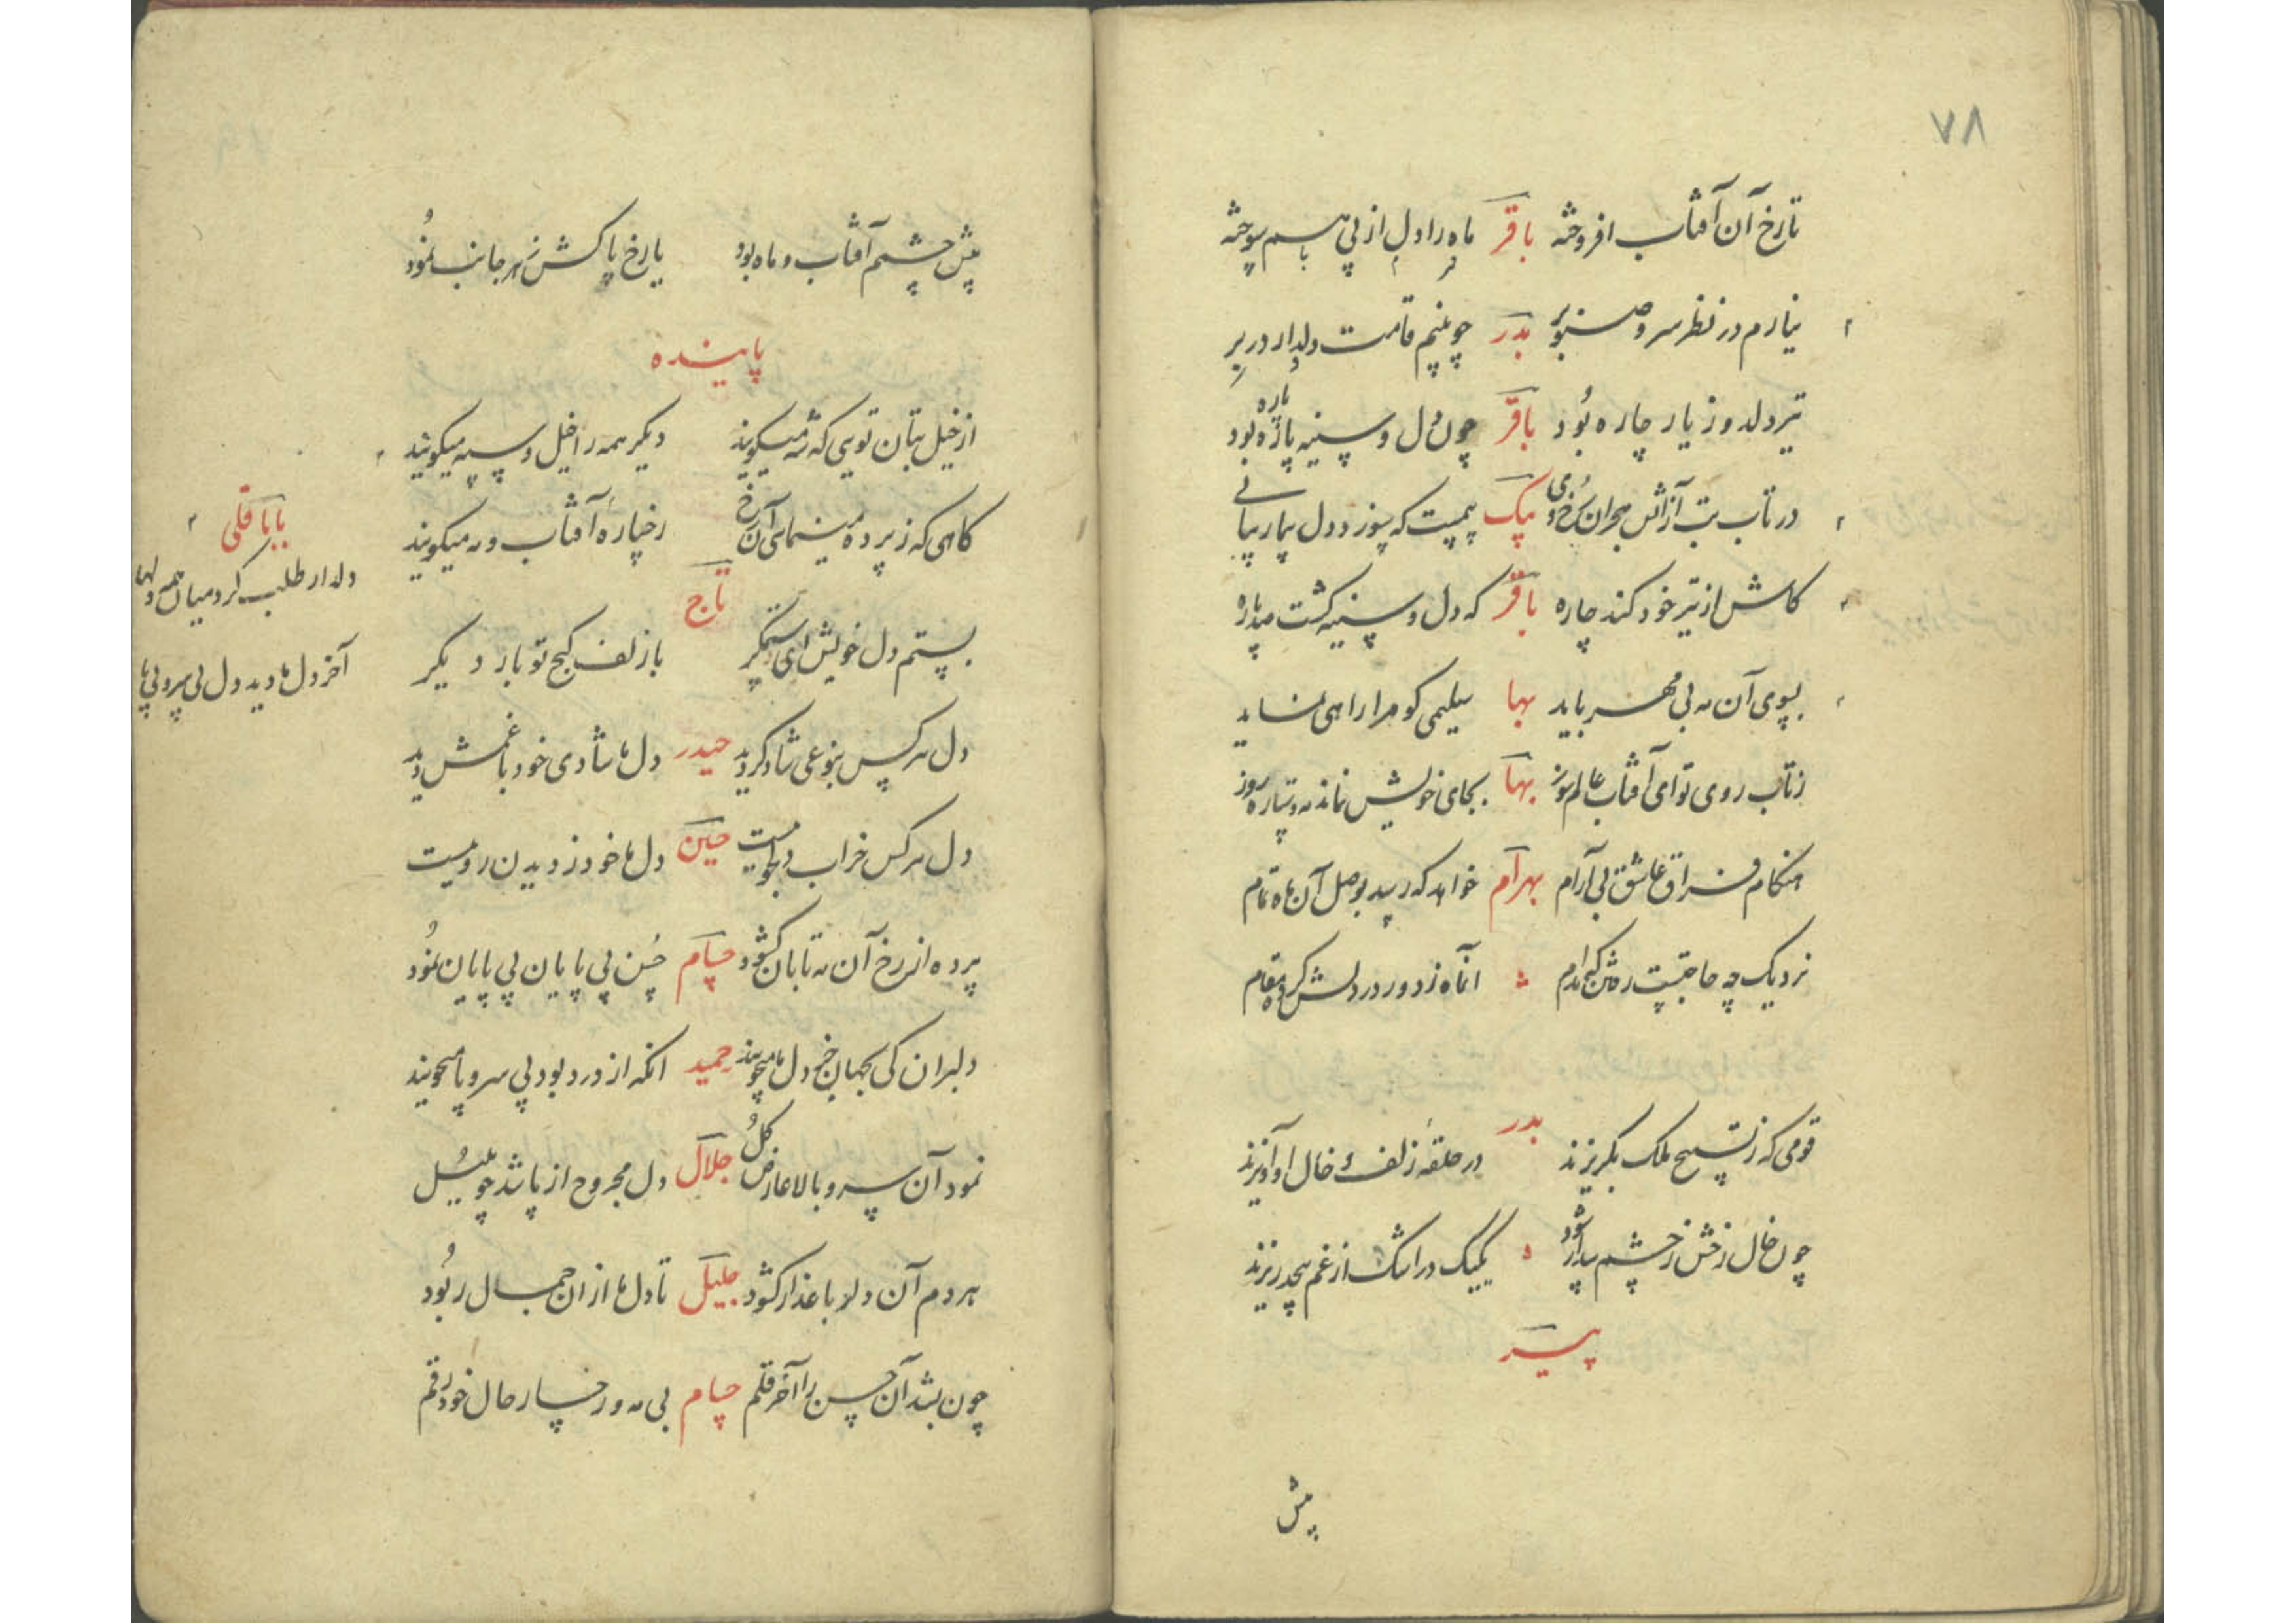 ٧٨
تا رخ آن آفتاب افروخته باقر ماه را دل از پی هم سوخته
نیارم در نظر سرو صنوبر بدر چو بینم قامت دلدار در بر
تیر دلدوز یار چاره بود باقر چون دل و سینه پاره پاره بود
در تاب تب آز آتش هجران رخ بیک که سوزد دل بیمار
کاش از تیر خود کند چاره باقر که دل و سینه گشت صد پاره
بسوی آن مه بی مهر باید بها سلیمی کو مرا راهی نماید
ز تاب روی تو ای آفتاب عالم سوز بها بجای خویش نماند مه و ستاره روز
هنگام فراق عاشق بی آرام بهرام خواهد که رسد بوصل آن ماه تمام
نزدیک چه حاجتست رفتن آنماه ز دور در دلش کرده مقام
بدر
قومی که ز تسبیح ملک بگریزند در حلقه زلف و خال او آویزند
چون خال رخش ز چشم پیدا نشود یکیک در اشک از غم بیحد ریزند
پیر
پیش
پیش چشمم آفتاب و ماه بود یا رخ پاکش ز هر جانب نمود
پاینده
از خیل بتان تویی که شه میگویند دیگر همه را خیل و سپه میگویند
گاهی که ز پرده مینمایی آن رخ رخساره آفتاب و مه میگویند
تاج
بستم دل خویش ای ستمگر با زلف کج تو بار دیگر
بابا قلی
دلدار طلب کرد میان همه دلها
آخر دل ما دید دل بی سر و بی پا
دل هر کس بنوعی شاد گردید حیدر دل ما شادی خود با غمش دید
دل هر کس خراب دلجوییست حسین دل ما خود ز دیدن روییست
پرده از رخ آن مه تابان گشود حسام حسن بی پایان بی پایان نمود
دلبران کی بجهان جز دل ما میجویند حمید آنکه از درد بود بی سر و پا میجویند
نمود آن سرو بالا عارض گل جلال دل مجروح از پا شد چو بلبل
هر دم آن دلبر با عذار گشود جلیل تا دل ما از ان جمال ربود
چون بشد آن حسن را آخر قلم حسام بی مه و رخسار حال خود رقم